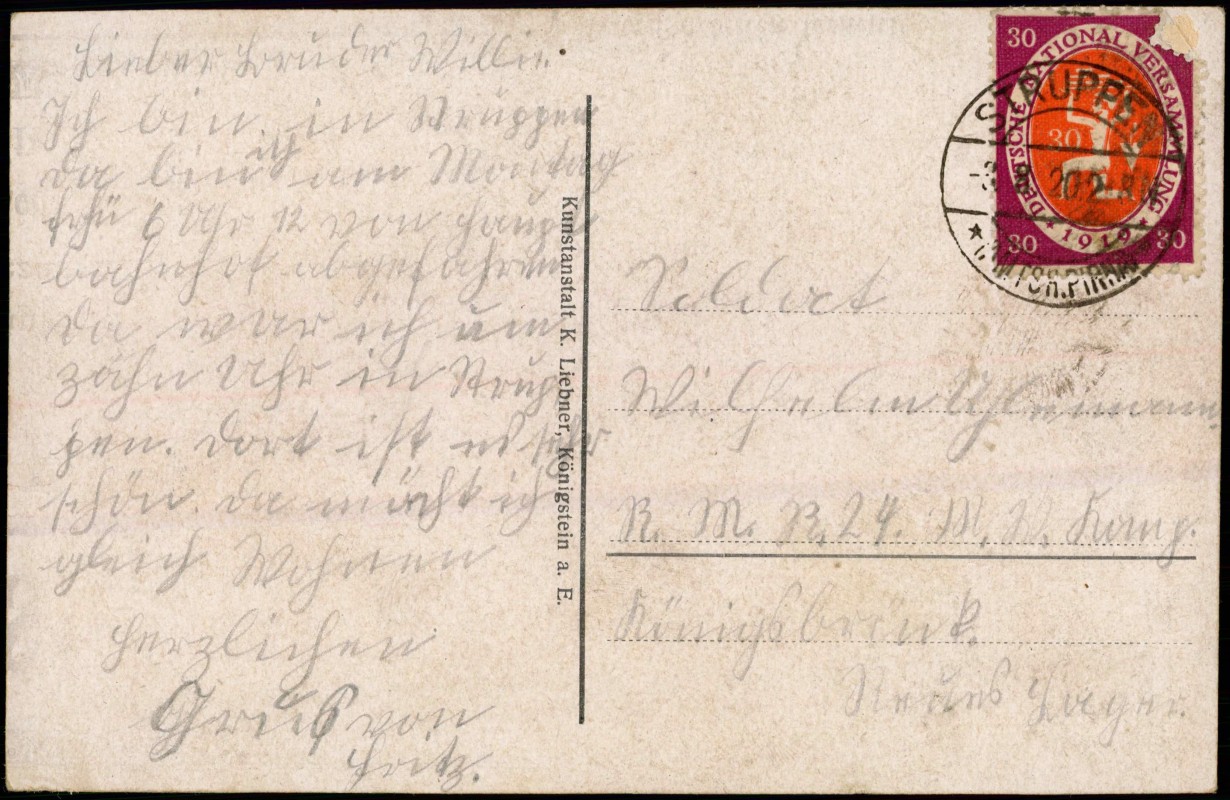 Lieber Bruder Willi.
Ich bin in Struppen
da bin ich am Montag
früh 6 Uhr 12 von Haupt
bahnhof abgefahren
da war ich um
zähn Uhr in Strup
pen. dort ist es sehr
schön da möcht ich
gleich Wohnen
Herzlichen
Gruß von
Fritz.
Kunstanstalt K. Liebner, Königstein a. E.
30
DEUTSCHE NATIONALVERSAMMLUNG
30
★ 1919 ★
30 30
STRUPPEN
20 2-
Soldat
Wilhelm
R. M. R. 24. M. W. Komp.
Königsbrück.
Neues Lager.